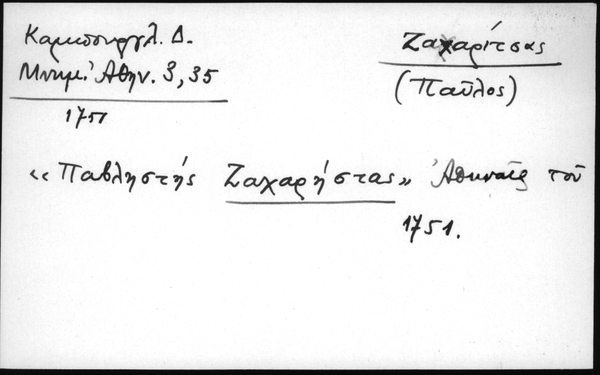 Καμπουργλ. Δ.
Μνημ. Ἀθην. 3, 35
1751
Ζαχαρίτσας
(Παῦλος)
«Παβληστής Ζαχαρήστας» Ἀθηναῖος τοῦ
1751.